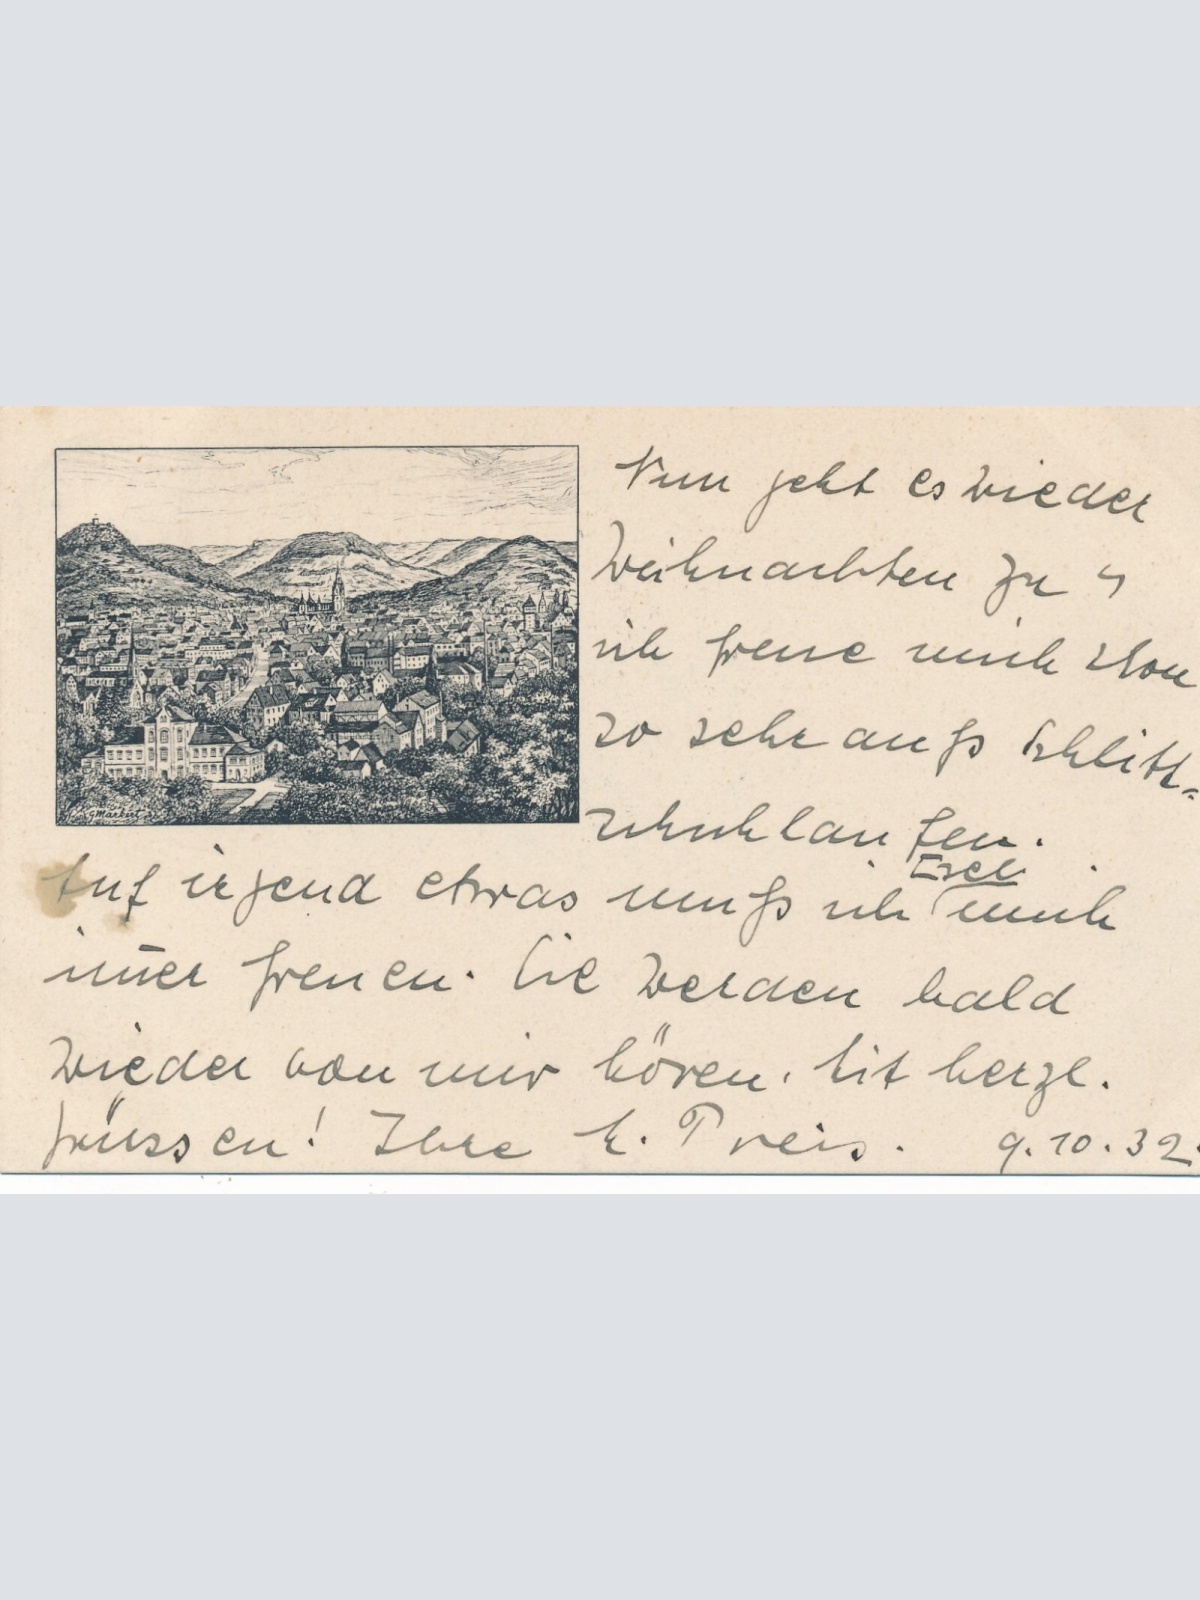 GMarkert
Nun geht es wieder
Weihnachten zu u.
ich freue mich schon
so sehr aufs Schlitt-
schuhlaufen.
Auf irgend etwas muß ich Esel mich
im̅er freuen. Sie werden bald
wieder von mir hören. Mit herzl.
Grüssen! Ihre K. Preis. 9.10.32.